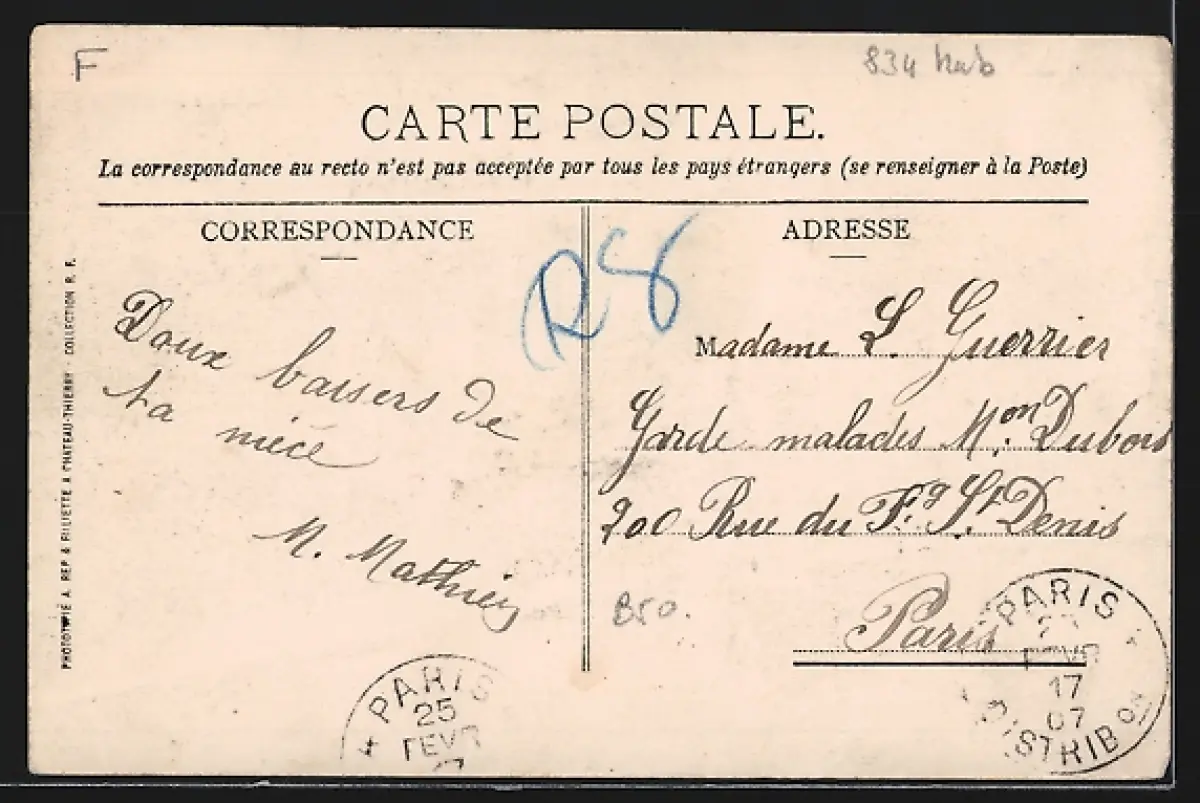 F
834
CARTE POSTALE.
La correspondance au recto n'est pas acceptée par tous les pays étrangers (se renseigner à la Poste)
CORRESPONDANCE
Doux baisers de
ta nièce
M. Mathieu
PHOTOTYPIE A. REP & FILLIETTE A CHATEAU-THIERRY - COLLECTION R. F.
ADRESSE
Madame L. Guerrier
Garde malades Mon. Dubois
200 Rue du Fg St Denis
Paris
PARIS
25
FEVR
PARIS
FEVR
17
07
DISTRIBON